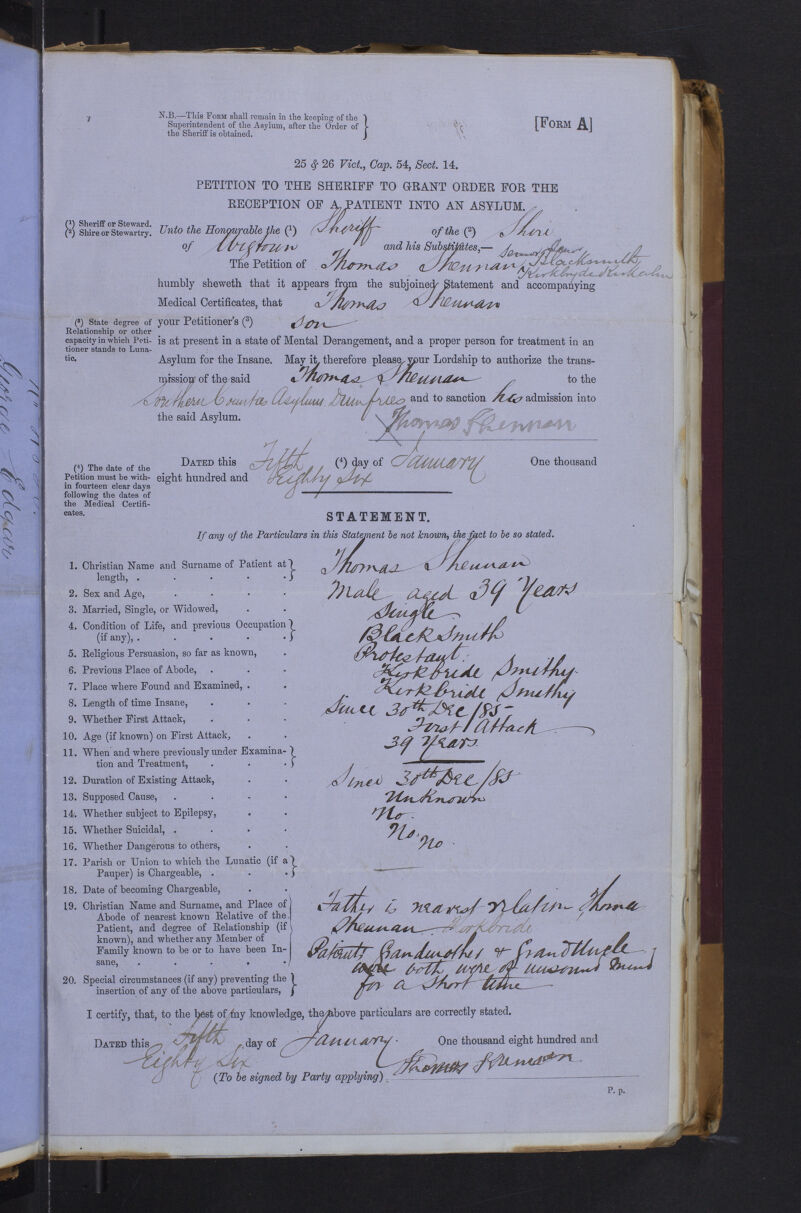 N.B.—This Form shall remain in the keeping of the
Superintendent of the Asylum, after the Order of
the Sheriff is obtained.
[Form A]
25 & 26 Vict., Cap. 54, Sect. 14.
PETITION TO THE SHERIFF TO GRANT ORDER FOR THE
RECEPTION OF A PATIENT INTO AN ASYLUM.
(1) Sheriff or Steward.
(2) Shire or Stewartry.
Unto the Honourable the (1) Sheriff of the (2) Shire
of Wigtown and his Substitutes,—
The Petition of Thomas Shennan, Senior, Blacksmith,
Kirkbryde Kirkcolm
humbly sheweth that it appears from the subjoined Statement and accompanying
Medical Certificates, that Thomas Shennan
(3) State degree of
Relationship or other
capacity in which Peti-
tioner stands to Luna-
tic.
your Petitioner's (3) Son
is at present in a state of Mental Derangement, and a proper person for treatment in an
Asylum for the Insane. May it therefore please your Lordship to authorize the trans-
mission of the said Thomas Shennan to the
Southern Counties Asylum Dumfries and to sanction his admission into
the said Asylum.
Thomas Shennan
(4) The date of the
Petition must be with-
in fourteen clear days
following the dates of
the Medical Certifi-
cates.
Dated this Fifth (4) day of January One thousand
eight hundred and Eighty Six
STATEMENT.
If any of the Particulars in this Statement be not known, the fact to be so stated.
1. Christian Name and Surname of Patient at
length, . . . . . Thomas Shennan
2. Sex and Age, . . . . Male aged 39 Years
3. Married, Single, or Widowed, . . Single
4. Condition of Life, and previous Occupation
(if any), . . . . . Black Smith
5. Religious Persuasion, so far as known, . Protestant
6. Previous Place of Abode, . . . Kirkbride Smithy
7. Place where Found and Examined, . . Kirkbride Smithy
8. Length of time Insane, . . . Since 30th Dec/85
9. Whether First Attack, . . . First Attack
10. Age (if known) on First Attack, . . 39 Years
11. When and where previously under Examina-
tion and Treatment, . . .
12. Duration of Existing Attack, . . Since 30th Dec/85
13. Supposed Cause, . . . . Unknown
14. Whether subject to Epilepsy, . . No.
15. Whether Suicidal, . . . . No.
16. Whether Dangerous to others, . . No.
17. Parish or Union to which the Lunatic (if a
Pauper) is Chargeable, . . . —
18. Date of becoming Chargeable, . .
19. Christian Name and Surname, and Place of
Abode of nearest known Relative of the
Patient, and degree of Relationship (if
known), and whether any Member of
Family known to be or to have been In-
sane, . . . . . .
Father is nearest relation Thomas
Shennan Kirkbride
Patients Grandmother & Grand Uncle
were both were of unsound mind
for a short time
20. Special circumstances (if any) preventing the
insertion of any of the above particulars,
I certify, that, to the best of my knowledge, the above particulars are correctly stated.
Dated this Fifth day of January One thousand eight hundred and
Eighty Six
(To be signed by Party applying) Thomas Shennan
P. p.
George Edgar